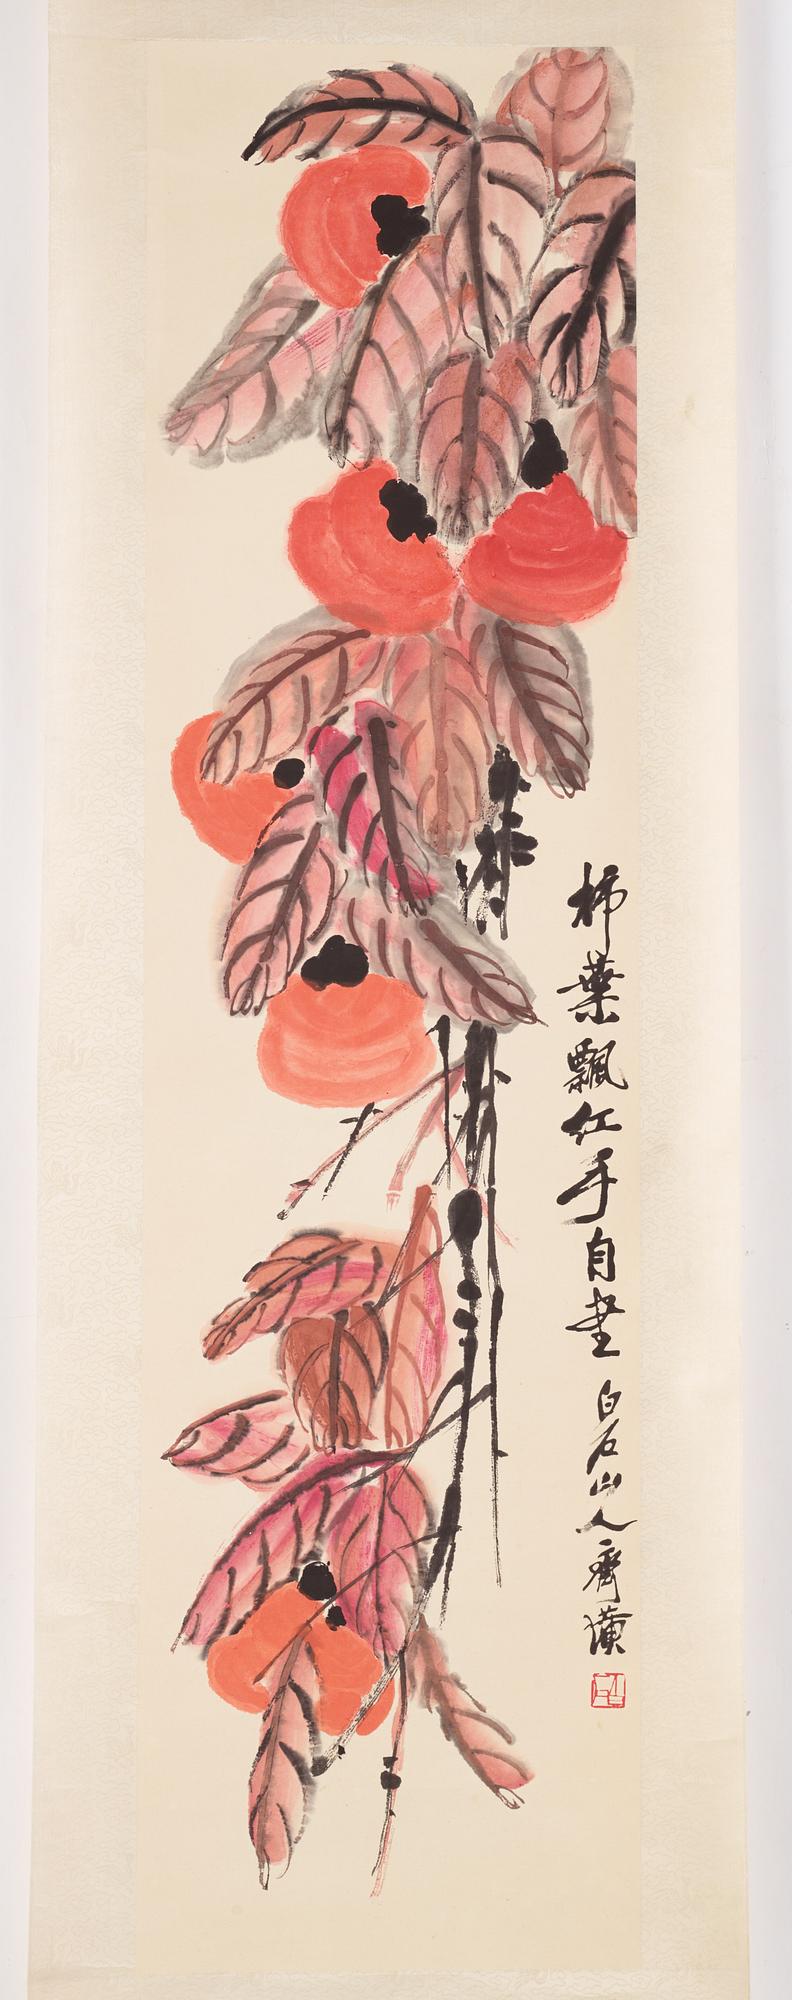 柿葉飄紅手自書
白石山人齊璜